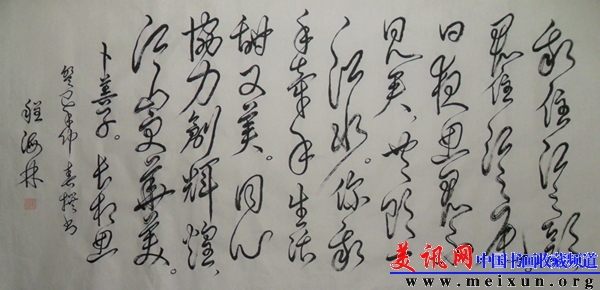 我住江之頭
君住江之尾。
日夜思君不
見君,共飲
一江水。你我
手牵手生活
甜又美。同心
協力創輝煌,
江山更華美。
卜算子。长相思
癸巳年仲春撰书
程海林
美讯网 中国书画收藏频道
www.meixun.org